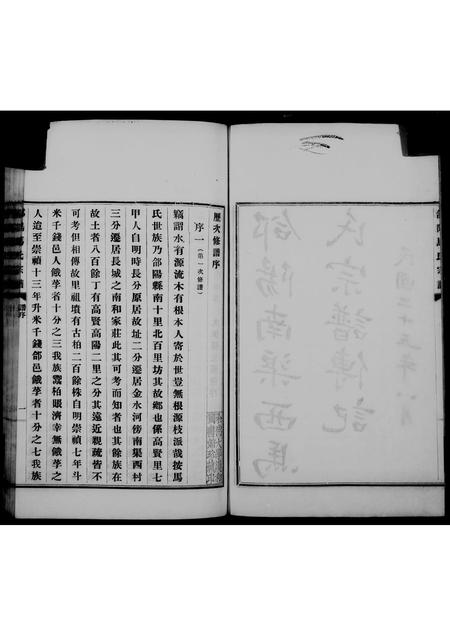 民國二十五年八月
氏宗譜傳記
郃陽南渠西馬
歷次修譜序
序一(第一次修譜)
竊謂水有源流木有根本人寄於世豈無根源枝派哉按馬
氏世族乃郃陽縣南十里北百里坊其故鄉也係高賢里七
甲人自明時長分原居故址二分遷居金水河傍南渠西村
三分遷居長城之南和家莊此其可考而知者也其餘族在
故土者八百餘丁有高賢高陽二里之分其遠近親疏皆不
可考但相傳故里祖墳有古柏二百餘株自明崇禎七年斗
米千錢邑人餓莩者十分之三我族鬻柏賑濟幸無餓莩之
人迨至崇禎十三年升米千錢郃邑餓莩者十分之七我族
譜序
一